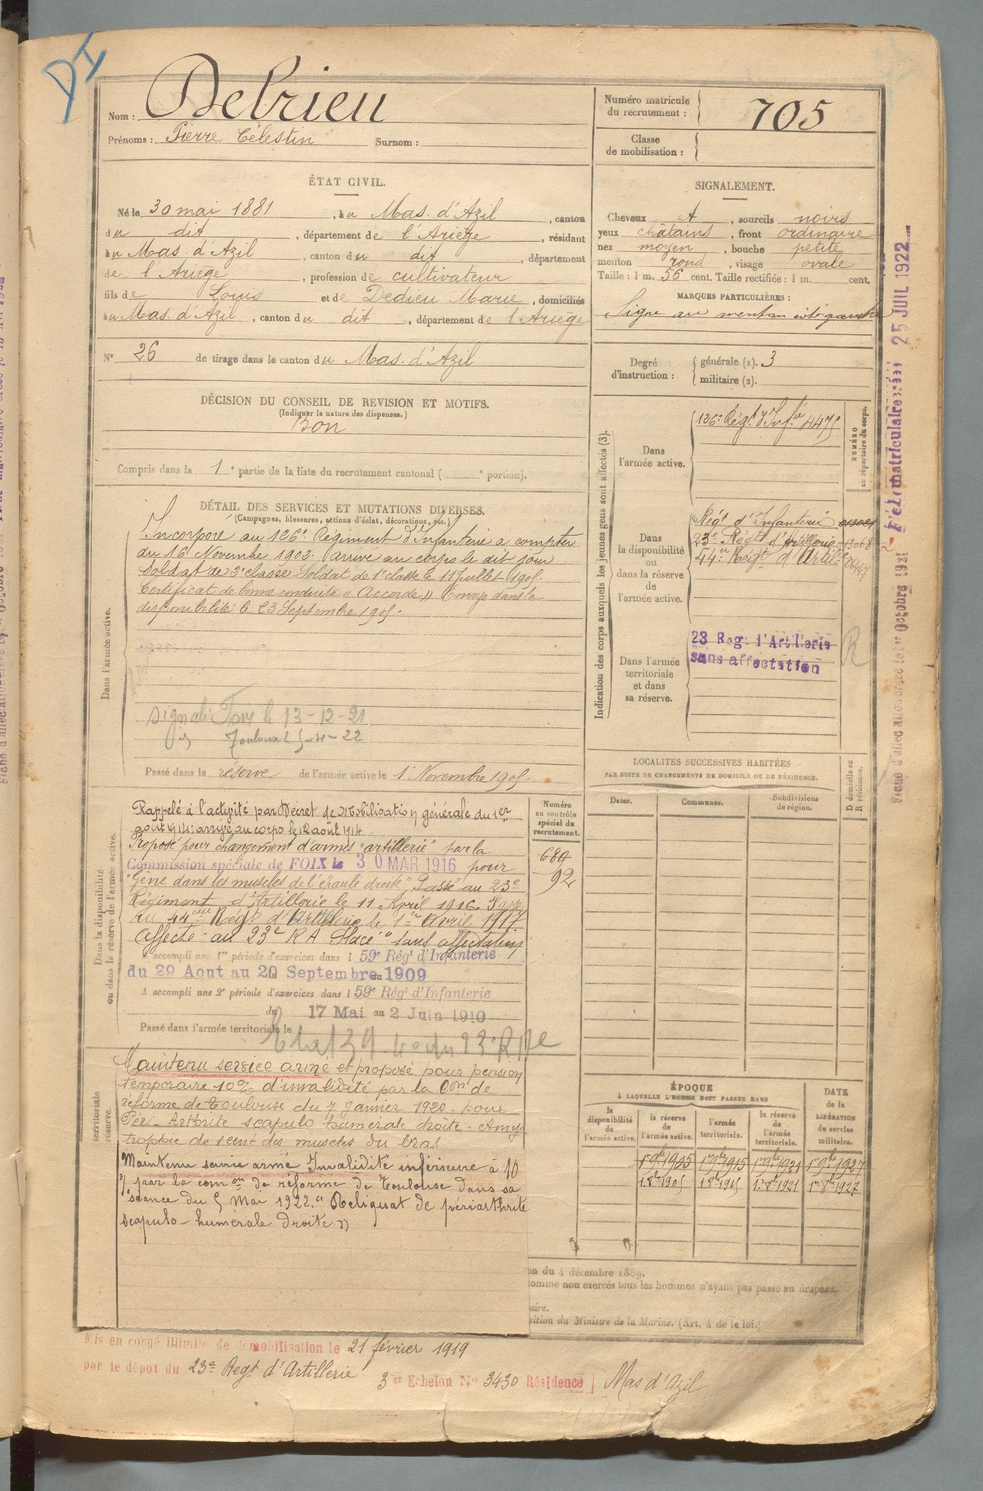 DI
Nom : Debrieu
Prénoms : Pierre Célestin Surnom :
Numéro matricule du recrutement : 705
Classe de mobilisation :
ÉTAT CIVIL.
Né le 30 mai 1881, à u Mas d'Azil, canton
du dit, département de l'Ariège, résidant
à u Mas d'Azil, canton du dit, département
de l'Ariège, profession de cultivateur
fils de Louis et de Dedieu Marie, domiciliés
à u Mas d'Azil, canton du dit, département de l'Ariège
N° 26 de tirage dans le canton du Mas d'Azil
SIGNALEMENT.
Cheveux A, sourcils noirs
yeux châtains, front ordinaire
nez moyen, bouche petite
menton rond, visage ovale
Taille : 1 m. 56 cent. Taille rectifiée : 1 m. cent.
MARQUES PARTICULIÈRES :
Signe au menton côté gauche
Degré d'instruction : générale (1). 3
militaire (2).
DÉCISION DU CONSEIL DE REVISION ET MOTIFS.
(Indiquer la nature des dispenses.)
Bon
Compris dans la 1e partie de la liste du recrutement cantonal ( e portion).
DÉTAIL DES SERVICES ET MUTATIONS DIVERSES.
(Campagnes, blessures, actions d'éclat, décorations, etc.)
Dans l'armée active.
Incorporé au 126e Régiment d'Infanterie à compter
du 16 Novembre 1903. Arrivé au corps le dit jour
Soldat de 2e classe. Soldat de 1e classe le 11 juillet 1905.
Certificat de bonne conduite « Accordé ». Envoyé dans la
disponibilité le 23 Septembre 1905.
Signalé le 13-12-21
Toulouse 5-4-22
Passé dans la réserve de l'armée active le 1 Novembre 1905.
Indication des corps auxquels les jeunes gens sont affectés (3).
NUMÉRO au répertoire du corps.
Dans l'armée active.
126e Régt d'Infie 4475
Dans la disponibilité ou dans la réserve de l'armée active.
Régt d'Infanterie
23e Régt d'Artillerie
44e Regt d'Artie
Dans l'armée territoriale et dans sa réserve.
23 Reg. d'Artillerie
sans affectation
R
Fiche matriculaire 25 JUIL 1922
Octobre 1921
LOCALITÉS SUCCESSIVES HABITÉES
PAR SUITE DE CHANGEMENTS DE DOMICILE OU DE RÉSIDENCE.
Dates. Communes. Subdivisions de région. D domicile ou R résidence.
Dans la disponibilité ou dans la réserve de l'armée active.
Numéro au contrôle spécial du recrutement.
689
92
Rappelé à l'activité par Décret de Mobilisation générale du 1er
août 1914. arrivé au corps le 12 août 1914
Proposé pour changement d'armes "artillerie" par la
Commission spéciale de FOIX le 30 MAR 1916 pour
"Gêne dans les muscles de l'épaule droite" Passé au 23e
Régiment d'Artillerie le 11 Avril 1916. Passé
au 44eme Régt d'Artillerie le 1er Avril 1917
Affecté au 23e R A Placé "sans affectation"
A accompli une 1re période d'exercices dans l 59e Régt d'Infanterie
du 29 Aout au 20 Septembre 1909
A accompli une 2e période d'exercices dans l 59e Régt d'Infanterie
du 17 Mai au 2 Juin 1910
Passé dans l'armée territoriale le
territoriale
réserve.
Maintenu service armé et proposé pour pension
temporaire 10% d'invalidité par la Con de
réforme de Toulouse du 7 janvier 1920. pour
Péri-Arthrite scapulo humérale droite - Amyo
trophie de 1 cent. des muscles du bras
Maintenu service armé Invalidité inférieure à 10
% par la comon de réforme de Toulouse dans sa
séance du 5 Mai 1922. "Reliquat de périarthrite
scapulo-humérale droite"
ÉPOQUE
À LAQUELLE L'HOMME DOIT PASSER DANS
la disponibilité de l'armée active. la réserve de l'armée active. l'armée territoriale. la réserve de l'armée territoriale. DATE de la LIBÉRATION du service militaire.
1r 9bre 1905 1r 9bre 1915 1r 9bre 1921 1r 9bre 1927
1r 8bre 1905 1r 8bre 1915 1r 8bre 1921 1r 8bre 1927
on du 4 décembre 1889.
comme non exercés tous les hommes n'ayant pas passé au drapeau.
aire.
sition du Ministre de la Marine. (Art. 4 de la loi.)
Mis en congé illimité de démobilisation le 21 février 1919
par le dépot du 23e Regt d'Artillerie
3er Echelon No 3430 Résidence Mas d'Azil